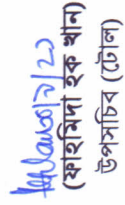 (ফাহমিদা হক খান)
উপসচিব (টোল)